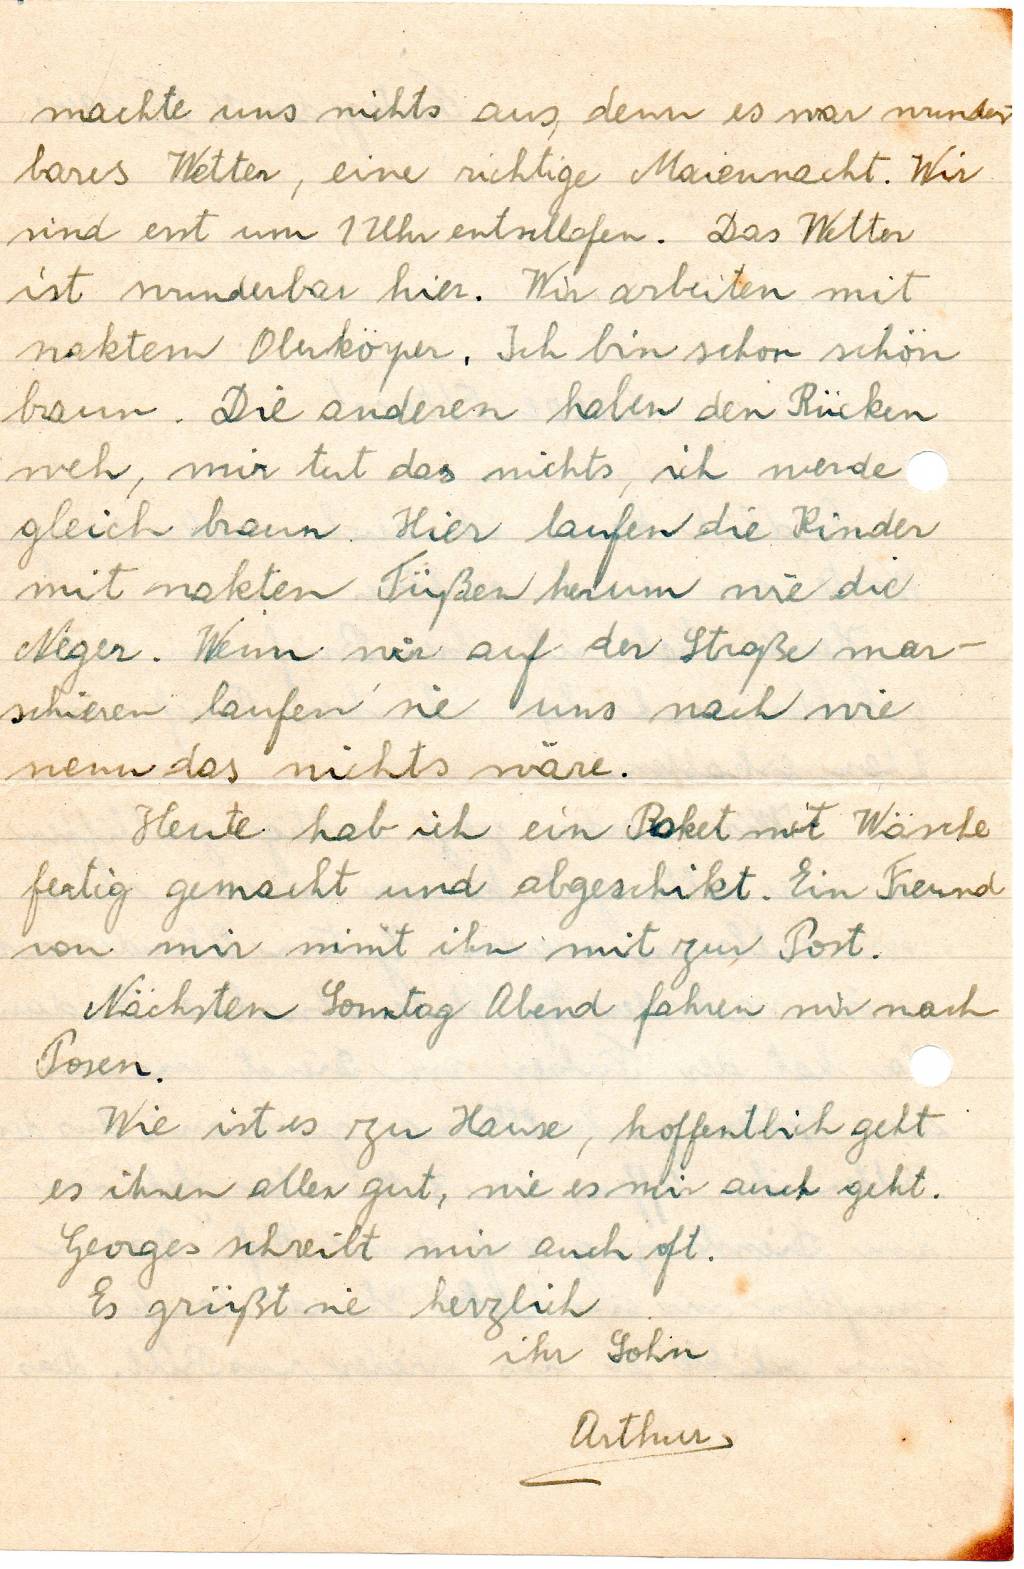 machte uns nichts aus, denn es war wunder-
bares Wetter, eine richtige Maiennacht. Wir
sind erst um 1 Uhr entschlafen. Das Wetter
ist wunderbar hier. Wir arbeiten mit
naktem Oberkörper. Ich bin schon schön
braun. Die anderen haben den Rücken
weh, mir tut das nichts, ich werde
gleich braun. Hier laufen die Kinder
mit nakten Füßen herum wie die
Neger. Wenn wir auf der Straße mar-
schieren laufen sie uns nach wie
wenn das nichts wäre.
Heute hab ich ein Paket mit Wäsche
fertig gemacht und abgeschikt. Ein Freund
von mir nimt ihn mit zur Post.
Nächsten Sonntag Abend fahren wir nach
Posen.
Wie ist es zu Hause, hoffentlich geht
es ihnen allen gut, wie es mir auch geht.
Georges schreibt mir auch oft.
Es grüßt sie herzlich
ihr Sohn
Arthur